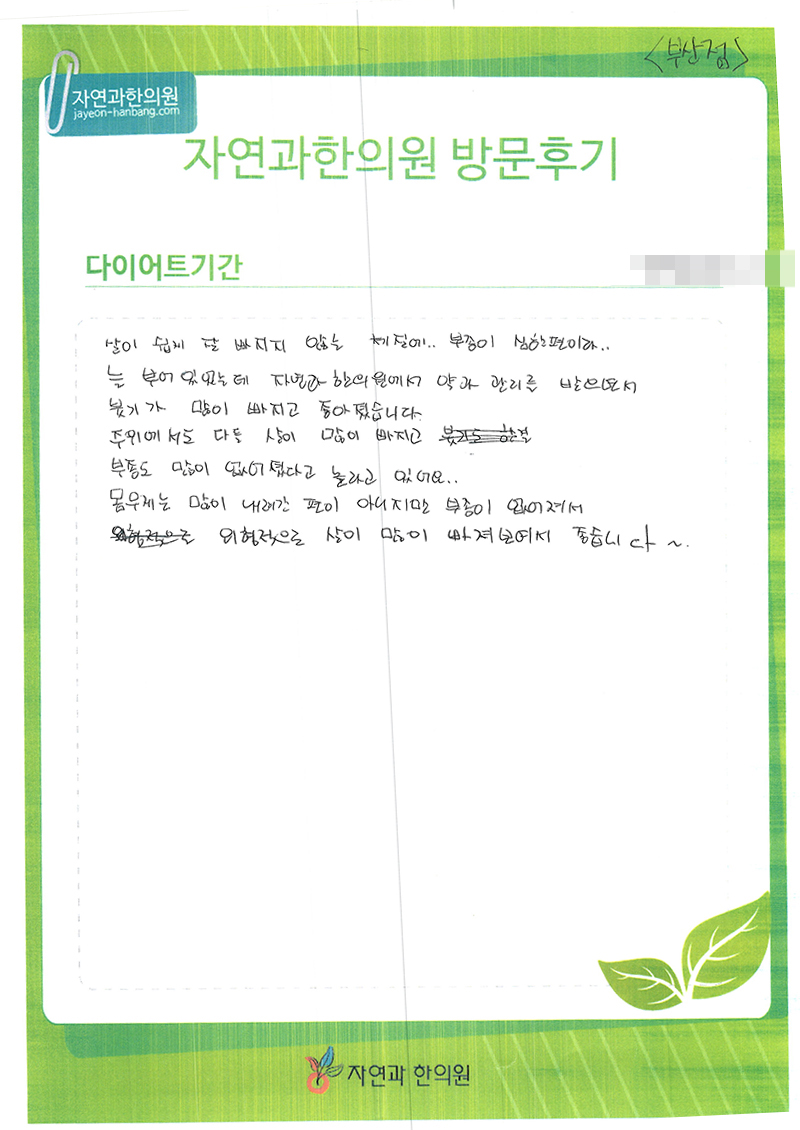 <부산점>
자연과한의원
jayeon-hanbang.com
자연과한의원 방문후기
다이어트기간
살이 쉽게 잘 빠지지 않는 체질에.. 부종이 심한편이라..
늘 부어있었는데 자연과한의원에서 약과 관리를 받으면서
붓기가 많이 빠지고 좋아졌습니다.
주위에서도 다들 살이 많이 빠지고
부종도 많이 없어졌다고 놀라고 있어요..
몸무게는 많이 내려간 편이 아니지만 부종이 없어져서
외형적으로 외형적으로 살이 많이 빠져보여서 좋습니다~.
자연과 한의원